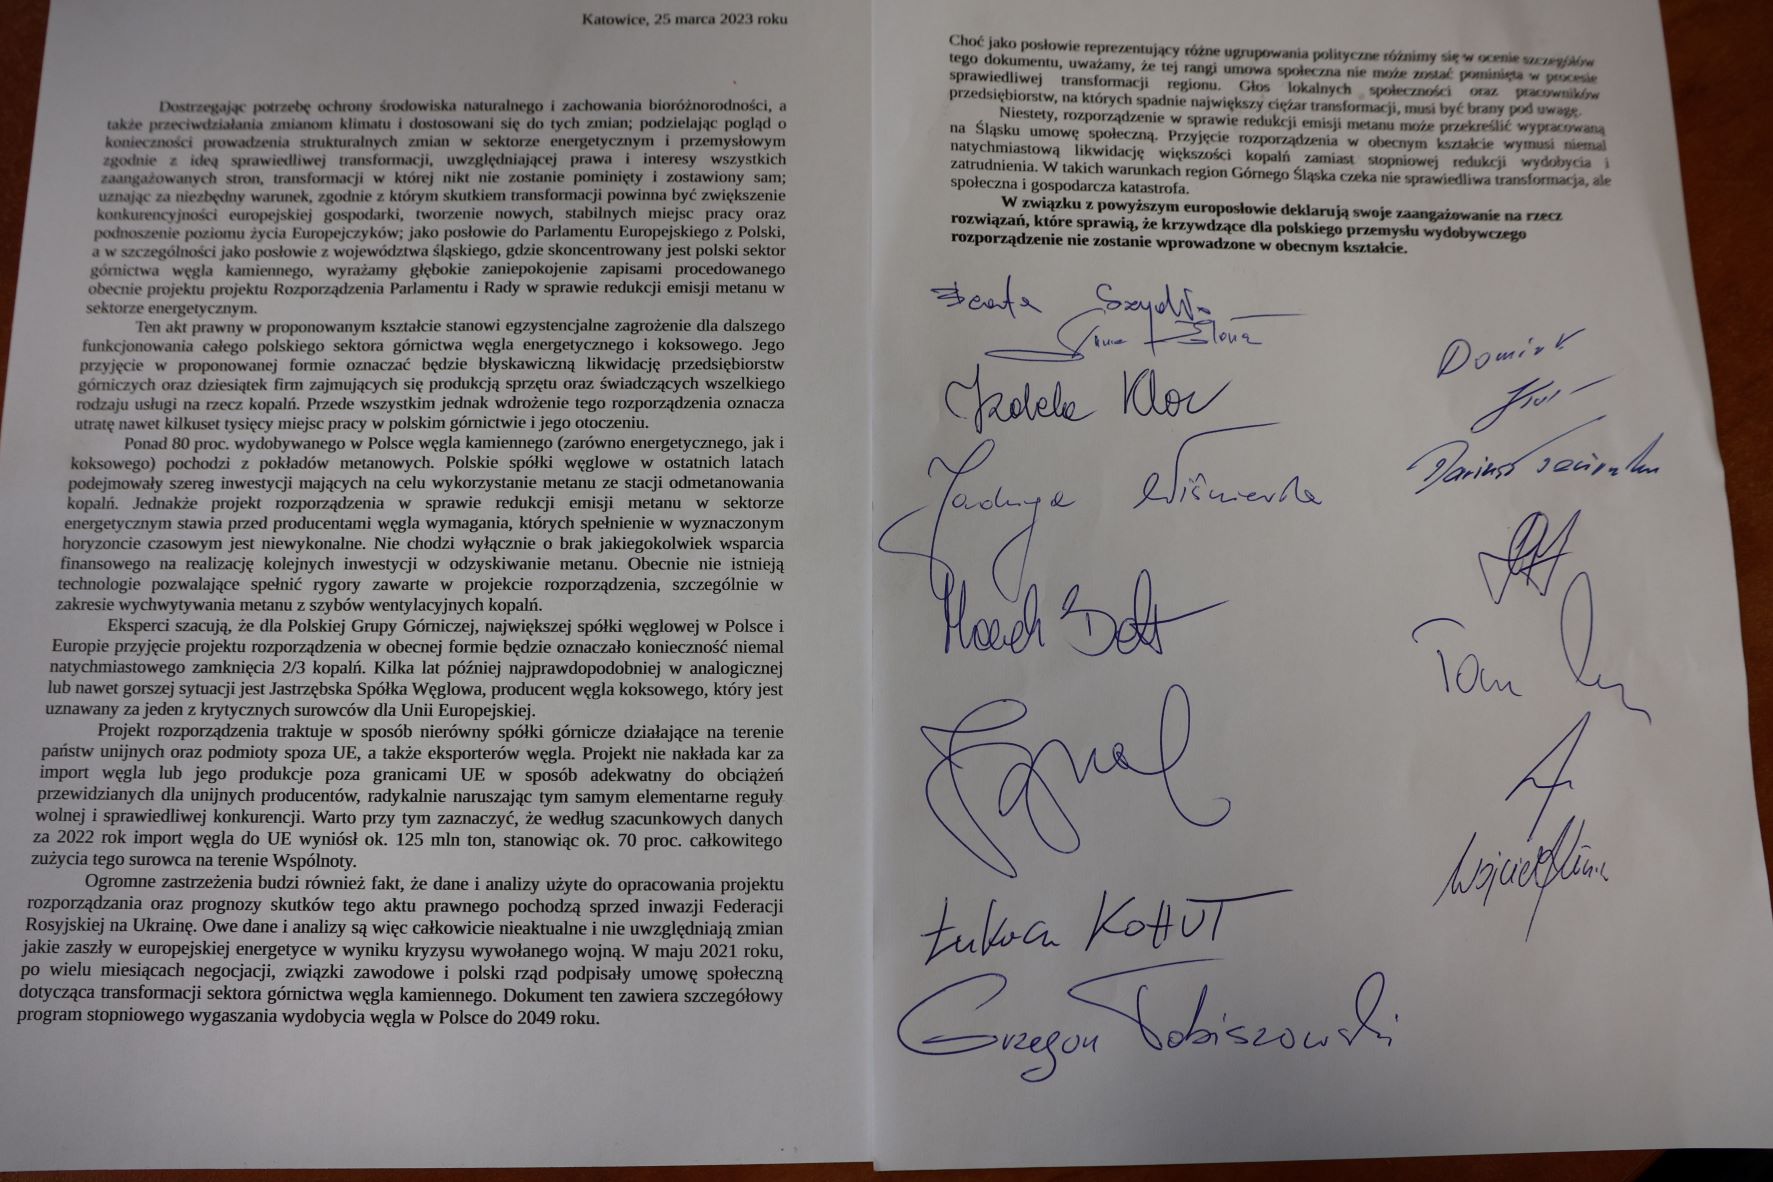 Katowice, 25 marca 2023 roku
Dostrzegając potrzebę ochrony środowiska naturalnego i zachowania bioróżnorodności, a
także przeciwdziałania zmianom klimatu i dostosowani się do tych zmian; podzielając pogląd o
konieczności prowadzenia strukturalnych zmian w sektorze energetycznym i przemysłowym
zgodnie z ideą sprawiedliwej transformacji, uwzględniającej prawa i interesy wszystkich
zaangażowanych stron, transformacji w której nikt nie zostanie pominięty i zostawiony sam;
uznając za niezbędny warunek, zgodnie z którym skutkiem transformacji powinna być zwiększenie
konkurencyjności europejskiej gospodarki, tworzenie nowych, stabilnych miejsc pracy oraz
podnoszenie poziomu życia Europejczyków; jako posłowie do Parlamentu Europejskiego z Polski,
a w szczególności jako posłowie z województwa śląskiego, gdzie skoncentrowany jest polski sektor
górnictwa węgla kamiennego, wyrażamy głębokie zaniepokojenie zapisami procedowanego
obecnie projektu projektu Rozporządzenia Parlamentu i Rady w sprawie redukcji emisji metanu w
sektorze energetycznym.
Ten akt prawny w proponowanym kształcie stanowi egzystencjalne zagrożenie dla dalszego
funkcjonowania całego polskiego sektora górnictwa węgla energetycznego i koksowego. Jego
przyjęcie w proponowanej formie oznaczać będzie błyskawiczną likwidację przedsiębiorstw
górniczych oraz dziesiątek firm zajmujących się produkcją sprzętu oraz świadczących wszelkiego
rodzaju usługi na rzecz kopalń. Przede wszystkim jednak wdrożenie tego rozporządzenia oznacza
utratę nawet kilkuset tysięcy miejsc pracy w polskim górnictwie i jego otoczeniu.
Ponad 80 proc. wydobywanego w Polsce węgla kamiennego (zarówno energetycznego, jak i
koksowego) pochodzi z pokładów metanowych. Polskie spółki węglowe w ostatnich latach
podejmowały szereg inwestycji mających na celu wykorzystanie metanu ze stacji odmetanowania
kopalń. Jednakże projekt rozporządzenia w sprawie redukcji emisji metanu w sektorze
energetycznym stawia przed producentami węgla wymagania, których spełnienie w wyznaczonym
horyzoncie czasowym jest niewykonalne. Nie chodzi wyłącznie o brak jakiegokolwiek wsparcia
finansowego na realizację kolejnych inwestycji w odzyskiwanie metanu. Obecnie nie istnieją
technologie pozwalające spełnić rygory zawarte w projekcie rozporządzenia, szczególnie w
zakresie wychwytywania metanu z szybów wentylacyjnych kopalń.
Eksperci szacują, że dla Polskiej Grupy Górniczej, największej spółki węglowej w Polsce i
Europie przyjęcie projektu rozporządzenia w obecnej formie będzie oznaczało konieczność niemal
natychmiastowego zamknięcia 2/3 kopalń. Kilka lat później najprawdopodobniej w analogicznej
lub nawet gorszej sytuacji jest Jastrzębska Spółka Węglowa, producent węgla koksowego, który jest
uznawany za jeden z krytycznych surowców dla Unii Europejskiej.
Projekt rozporządzenia traktuje w sposób nierówny spółki górnicze działające na terenie
państw unijnych oraz podmioty spoza UE, a także eksporterów węgla. Projekt nie nakłada kar za
import węgla lub jego produkcje poza granicami UE w sposób adekwatny do obciążeń
przewidzianych dla unijnych producentów, radykalnie naruszając tym samym elementarne reguły
wolnej i sprawiedliwej konkurencji. Warto przy tym zaznaczyć, że według szacunkowych danych
za 2022 rok import węgla do UE wyniósł ok. 125 mln ton, stanowiąc ok. 70 proc. całkowitego
zużycia tego surowca na terenie Wspólnoty.
Ogromne zastrzeżenia budzi również fakt, że dane i analizy użyte do opracowania projektu
rozporządzania oraz prognozy skutków tego aktu prawnego pochodzą sprzed inwazji Federacji
Rosyjskiej na Ukrainę. Owe dane i analizy są więc całkowicie nieaktualne i nie uwzględniają zmian
jakie zaszły w europejskiej energetyce w wyniku kryzysu wywołanego wojną. W maju 2021 roku,
po wielu miesiącach negocjacji, związki zawodowe i polski rząd podpisały umowę społeczną
dotycząca transformacji sektora górnictwa węgla kamiennego. Dokument ten zawiera szczegółowy
program stopniowego wygaszania wydobycia węgla w Polsce do 2049 roku.
Choć jako posłowie reprezentujący różne ugrupowania polityczne różnimy się w ocenie szczegółów
tego dokumentu, uważamy, że tej rangi umowa społeczna nie może zostać pominięta w procesie
sprawiedliwej transformacji regionu. Głos lokalnych społeczności oraz pracowników
przedsiębiorstw, na których spadnie największy ciężar transformacji, musi być brany pod uwagę.
Niestety, rozporządzenie w sprawie redukcji emisji metanu może przekreślić wypracowaną
na Śląsku umowę społeczną. Przyjęcie rozporządzenia w obecnym kształcie wymusi niemal
natychmiastową likwidację większości kopalń zamiast stopniowej redukcji wydobycia i
zatrudnienia. W takich warunkach region Górnego Śląska czeka nie sprawiedliwa transformacja, ale
społeczna i gospodarcza katastrofa.
W związku z powyższym europosłowie deklarują swoje zaangażowanie na rzecz
rozwiązań, które sprawią, że krzywdzące dla polskiego przemysłu wydobywczego
rozporządzenie nie zostanie wprowadzone w obecnym kształcie.
Beata Szydło
Izabela Kloc
Dominik
Jadwiga Wiśniewska
Dariusz
Marek
Łukasz KOHUT
Wojciech
Grzegorz Tobiszowski